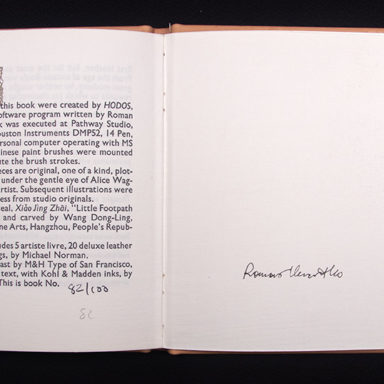 this book were created by HODOS,
oftware program written by Roman
k was executed at Pathway Studio,
uston Instruments DMP52, 14 Pen,
ersonal computer operating with MS
inese paint brushes were mounted
ute the brush strokes.
eces are original, one of a kind, plot-
under the gentle eye of Alice Wag-
rtist. Subsequent illustrations were
ess from studio originals.
eal, Xiǎo Jìng Zhāi, "Little Footpath
and carved by Wang Dong-Ling,
ne Arts, Hangzhou, People's Repub-
udes 5 artiste livre, 20 deluxe leather
gs, by Michael Norman.
ast by M&H Type of San Francisco,
text, with Kohl & Madden inks, by
This is book No. 82/100
82
Roman Verostko